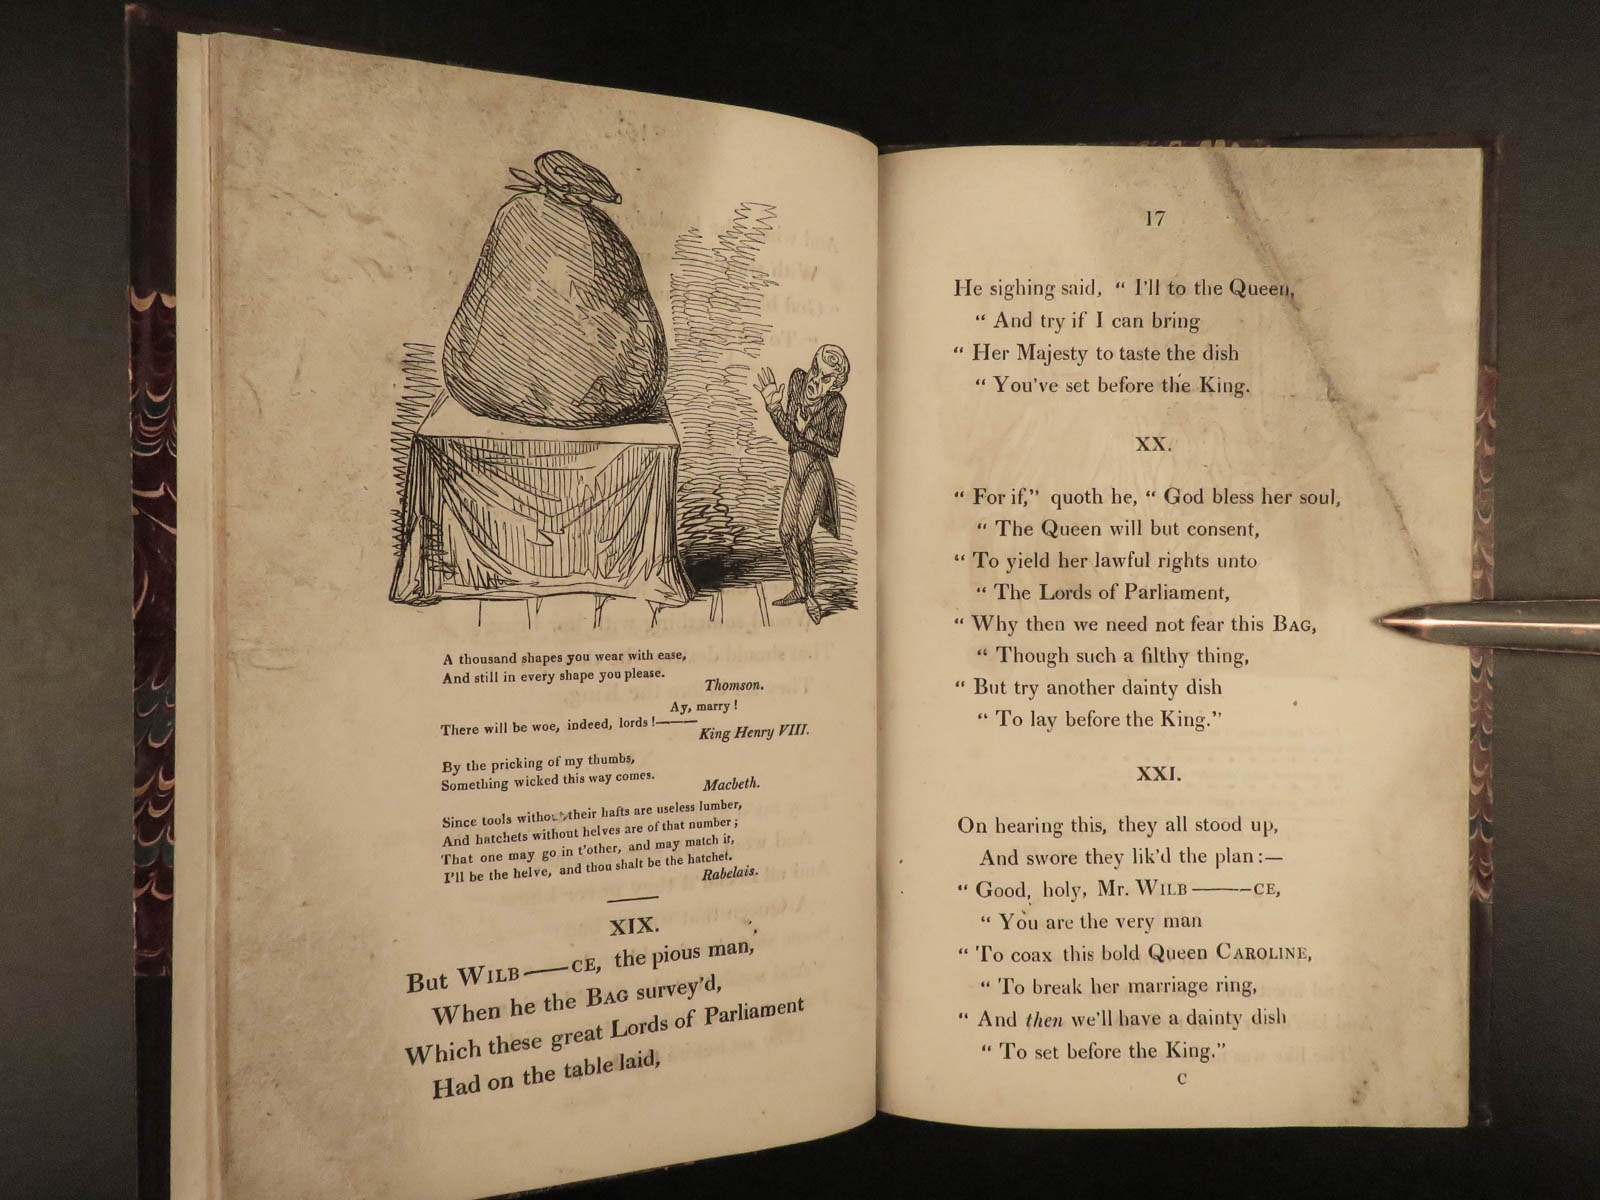 A thousand shapes you wear with ease,
And still in every shape you please.
Thomson.
Ay, marry !
There will be woe, indeed, lords !——
King Henry VIII.
By the pricking of my thumbs,
Something wicked this way comes.
Macbeth.
Since tools without their hafts are useless lumber,
And hatchets without helves are of that number ;
That one may go in t'other, and may match it,
I'll be the helve, and thou shalt be the hatchet.
Rabelais.
XIX.
But WILB——CE, the pious man,
When he the BAG survey'd,
Which these great Lords of Parliament
Had on the table laid,
17
He sighing said, “ I'll to the Queen,
“ And try if I can bring
“ Her Majesty to taste the dish
“ You've set before the King.
XX.
“ For if,” quoth he, “ God bless her soul,
“ The Queen will but consent,
“ To yield her lawful rights unto
“ The Lords of Parliament,
“ Why then we need not fear this BAG,
“ Though such a filthy thing,
“ But try another dainty dish
“ To lay before the King.”
XXI.
On hearing this, they all stood up,
And swore they lik'd the plan :—
“ Good, holy, Mr. WILB———CE,
“ You are the very man
“ To coax this bold Queen CAROLINE,
“ To break her marriage ring,
“ And then we'll have a dainty dish
“ To set before the King.”
C